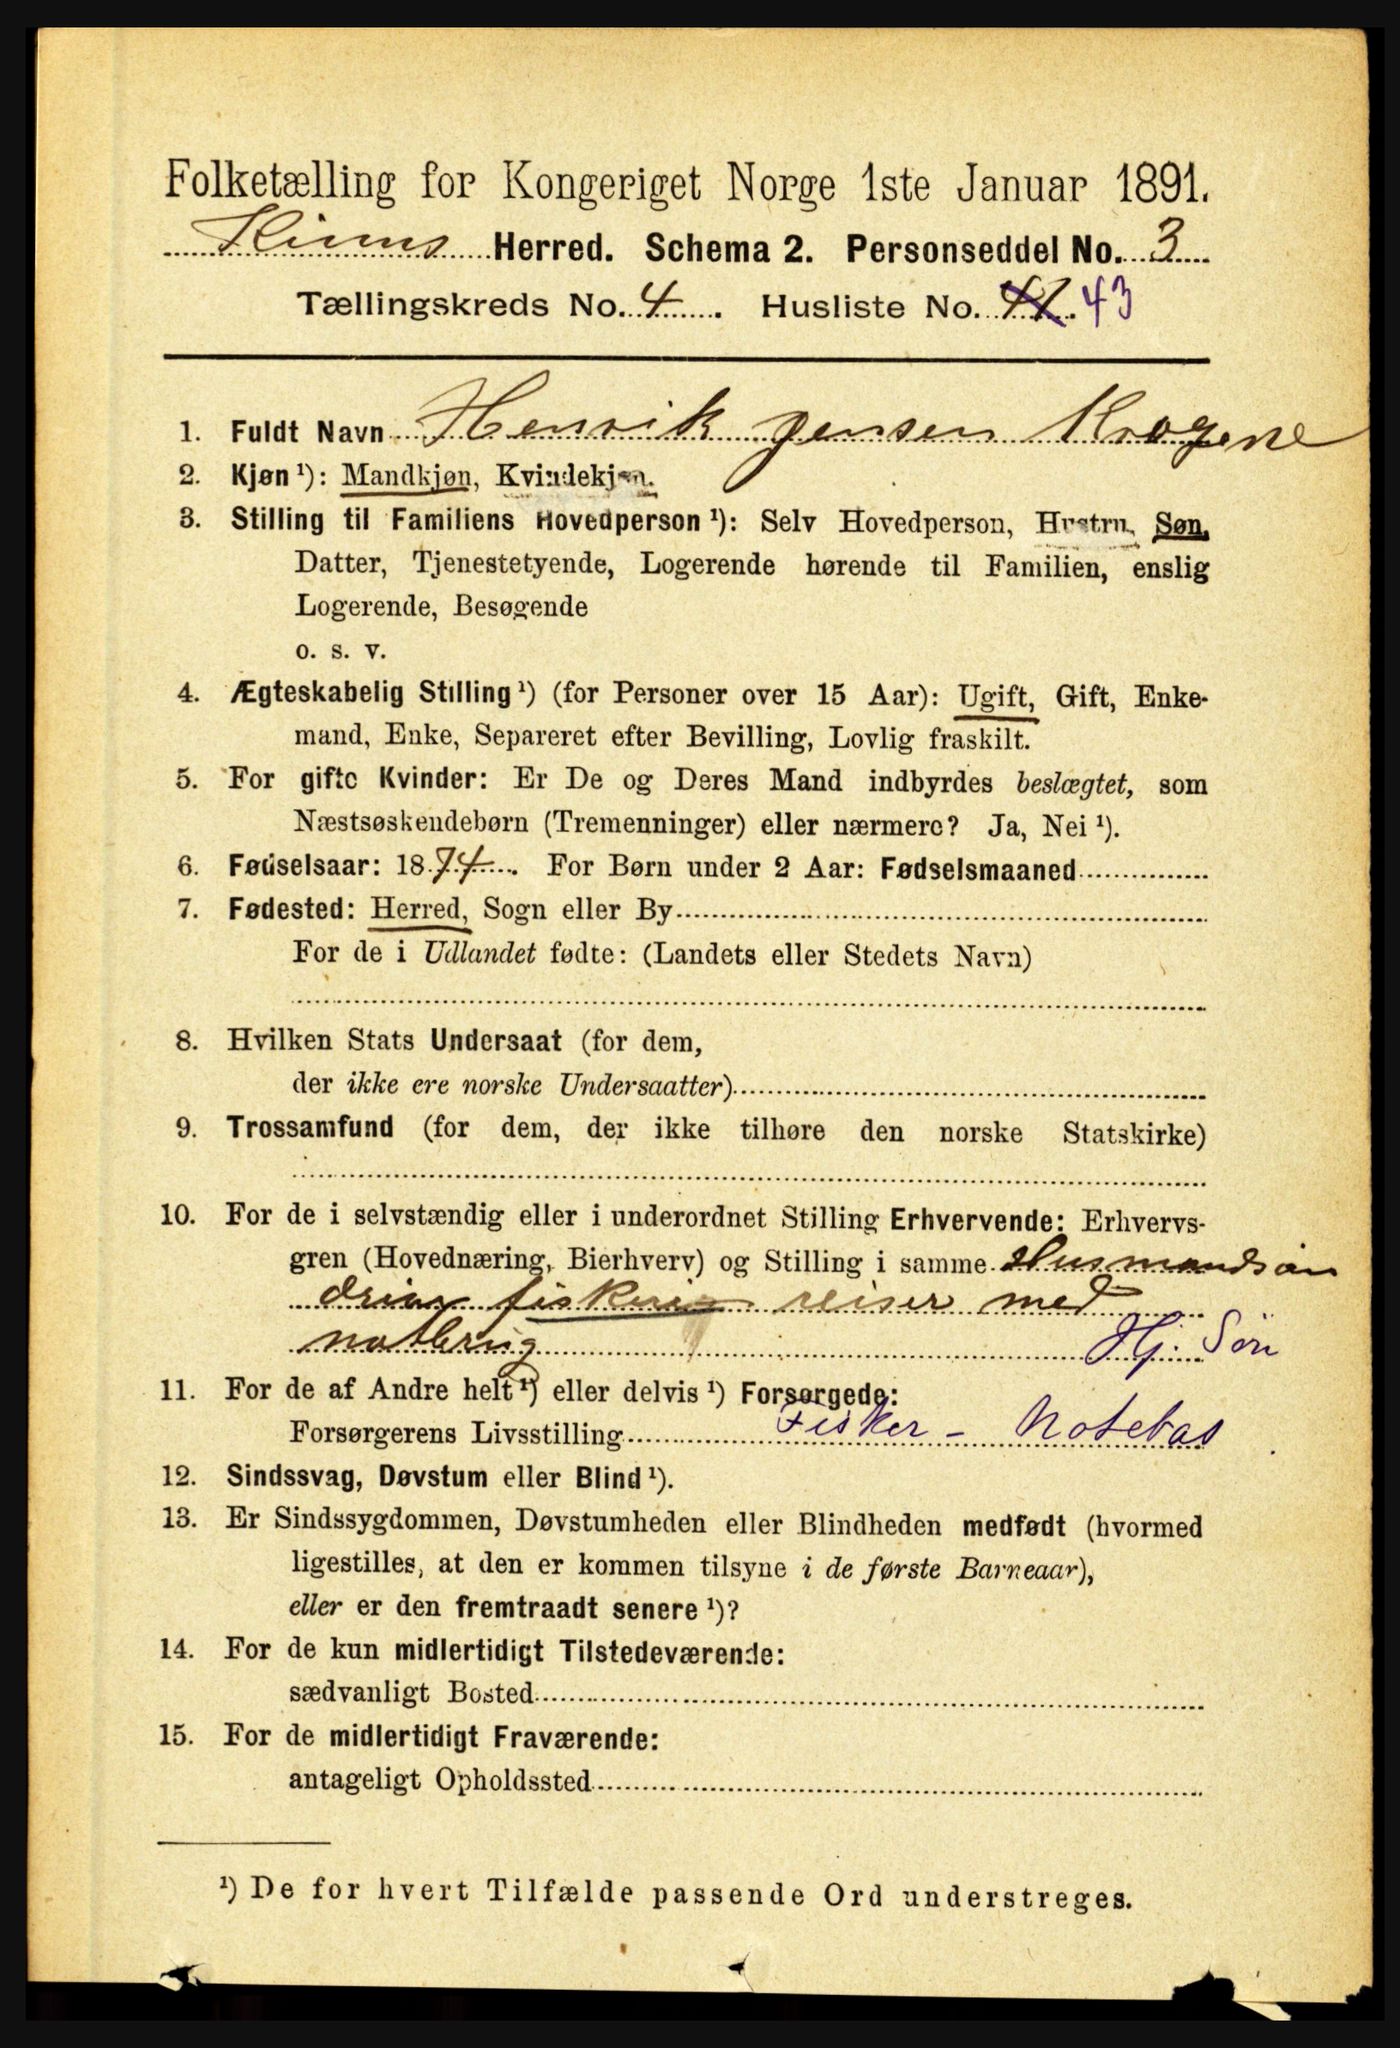 Folketælling for Kongeriget Norge 1ste Januar 1891.
Kinns Herred. Schema 2. Personseddel No. 3
Tællingskreds No. 4. Husliste No. 41. 43
1. Fuldt Navn Henrik Jensen Krogene
2. Kjøn ¹): Mandkjøn, Kvindekjøn.
3. Stilling til Familiens Hovedperson ¹): Selv Hovedperson, Hustru, Søn,
Datter, Tjenestetyende, Logerende hørende til Familien, enslig
Logerende, Besøgende
o. s. v.
4. Ægteskabelig Stilling ¹) (for Personer over 15 Aar): Ugift, Gift, Enke-
mand, Enke, Separeret efter Bevilling, Lovlig fraskilt.
5. For gifte Kvinder: Er De og Deres Mand indbyrdes beslægtet, som
Næstsøskendebørn (Tremenninger) eller nærmere? Ja, Nei ¹).
6. Fødselsaar: 1874. For Børn under 2 Aar: Fødselsmaaned
7. Fødested: Herred, Sogn eller By
For de i Udlandet fødte: (Landets eller Stedets Navn)
8. Hvilken Stats Undersaat (for dem,
der ikke ere norske Undersaatter)
9. Trossamfund (for dem, der ikke tilhøre den norske Statskirke)
10. For de i selvstændig eller i underordnet Stilling Erhvervende: Erhvervs-
gren (Hovednæring, Bierhverv) og Stilling i samme Husmandsøn
driver fiskeri reiser med
notbrug Hj. Søn
11. For de af Andre helt ¹) eller delvis ¹) Forsørgede:
Forsørgerens Livsstilling Fisker - Notebas
12. Sindssvag, Døvstum eller Blind ¹).
13. Er Sindssygdommen, Døvstumheden eller Blindheden medfødt (hvormed
ligestilles, at den er kommen tilsyne i de første Barneaar),
eller er den fremtraadt senere ¹)?
14. For de kun midlertidigt Tilstedeværende:
sædvanligt Bosted
15. For de midlertidigt Fraværende:
antageligt Opholdssted
¹) De for hvert Tilfælde passende Ord understreges.